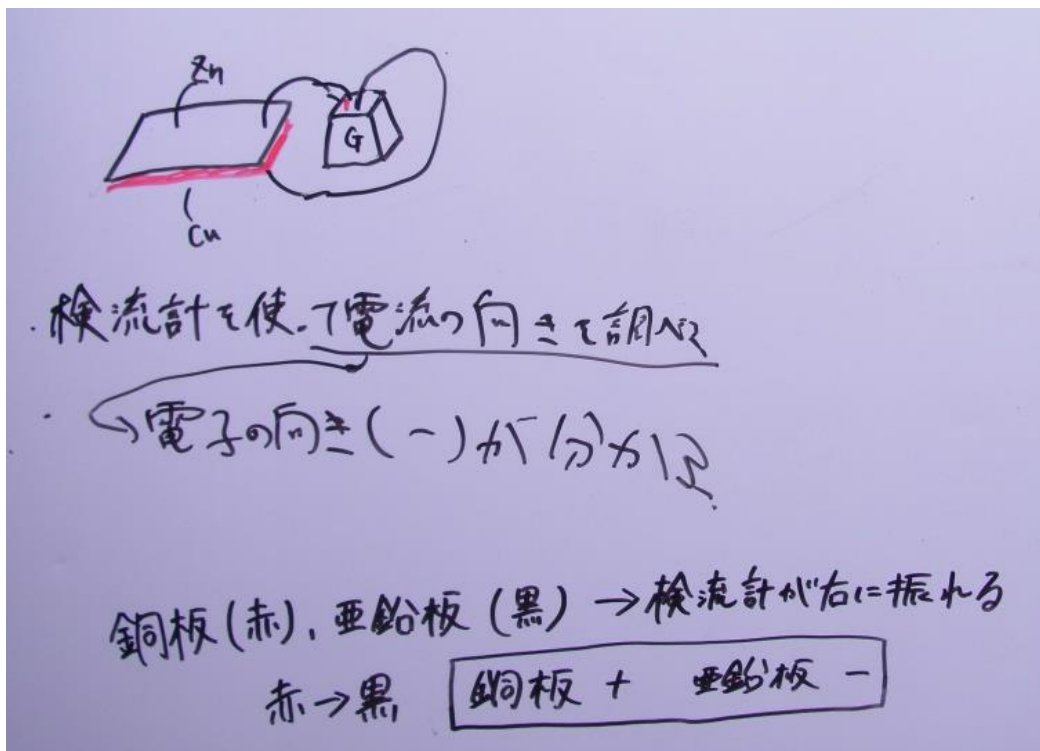 Zn
G
Cu
・検流計を使って電流の向きを調べる
・電子の向き(-)が分かる
銅板(赤), 亜鉛板(黒) → 検流計が右に振れる
赤→黒 銅板 + 亜鉛板 -